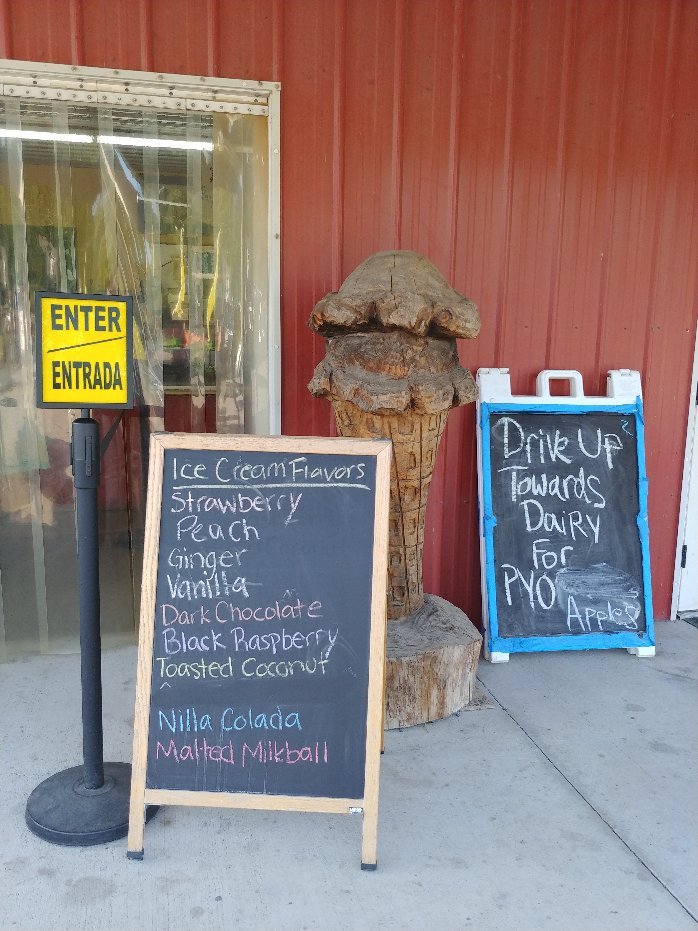 ENTER
ENTRADA
Ice Cream Flavors
Strawberry
Peach
Ginger
Vanilla
Dark Chocolate
Black Raspberry
Toasted Coconut
Nilla Colada
Malted Milkball
Drive Up
Towards
Dairy
For
PYO
Apples